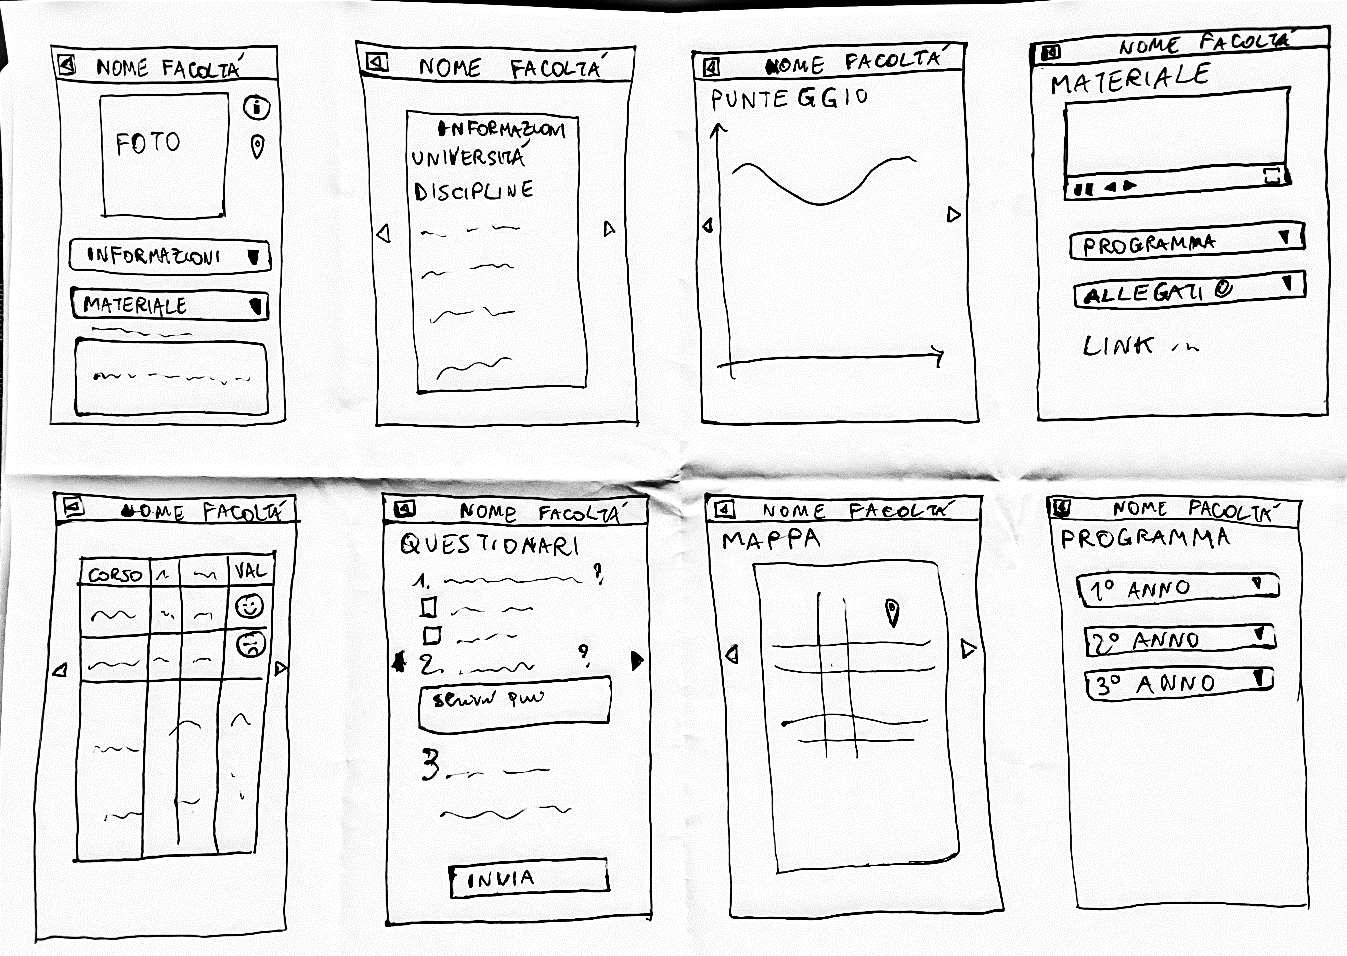 NOME FACOLTÁ
FOTO
INFORMAZIONI
MATERIALE
NOME FACOLTÁ
INFORMAZIONI
UNIVERSITÁ
DISCIPLINE
NOME FACOLTÁ
PUNTEGGIO
NOME FACOLTÁ
MATERIALE
PROGRAMMA
ALLEGATI
LINK
NOME FACOLTÁ
CORSO VAL
NOME FACOLTÁ
QUESTIONARI
1. ?
2. ?
scrivi qui
3
INVIA
NOME FACOLTÁ
MAPPA
NOME FACOLTÁ
PROGRAMMA
1° ANNO
2° ANNO
3° ANNO